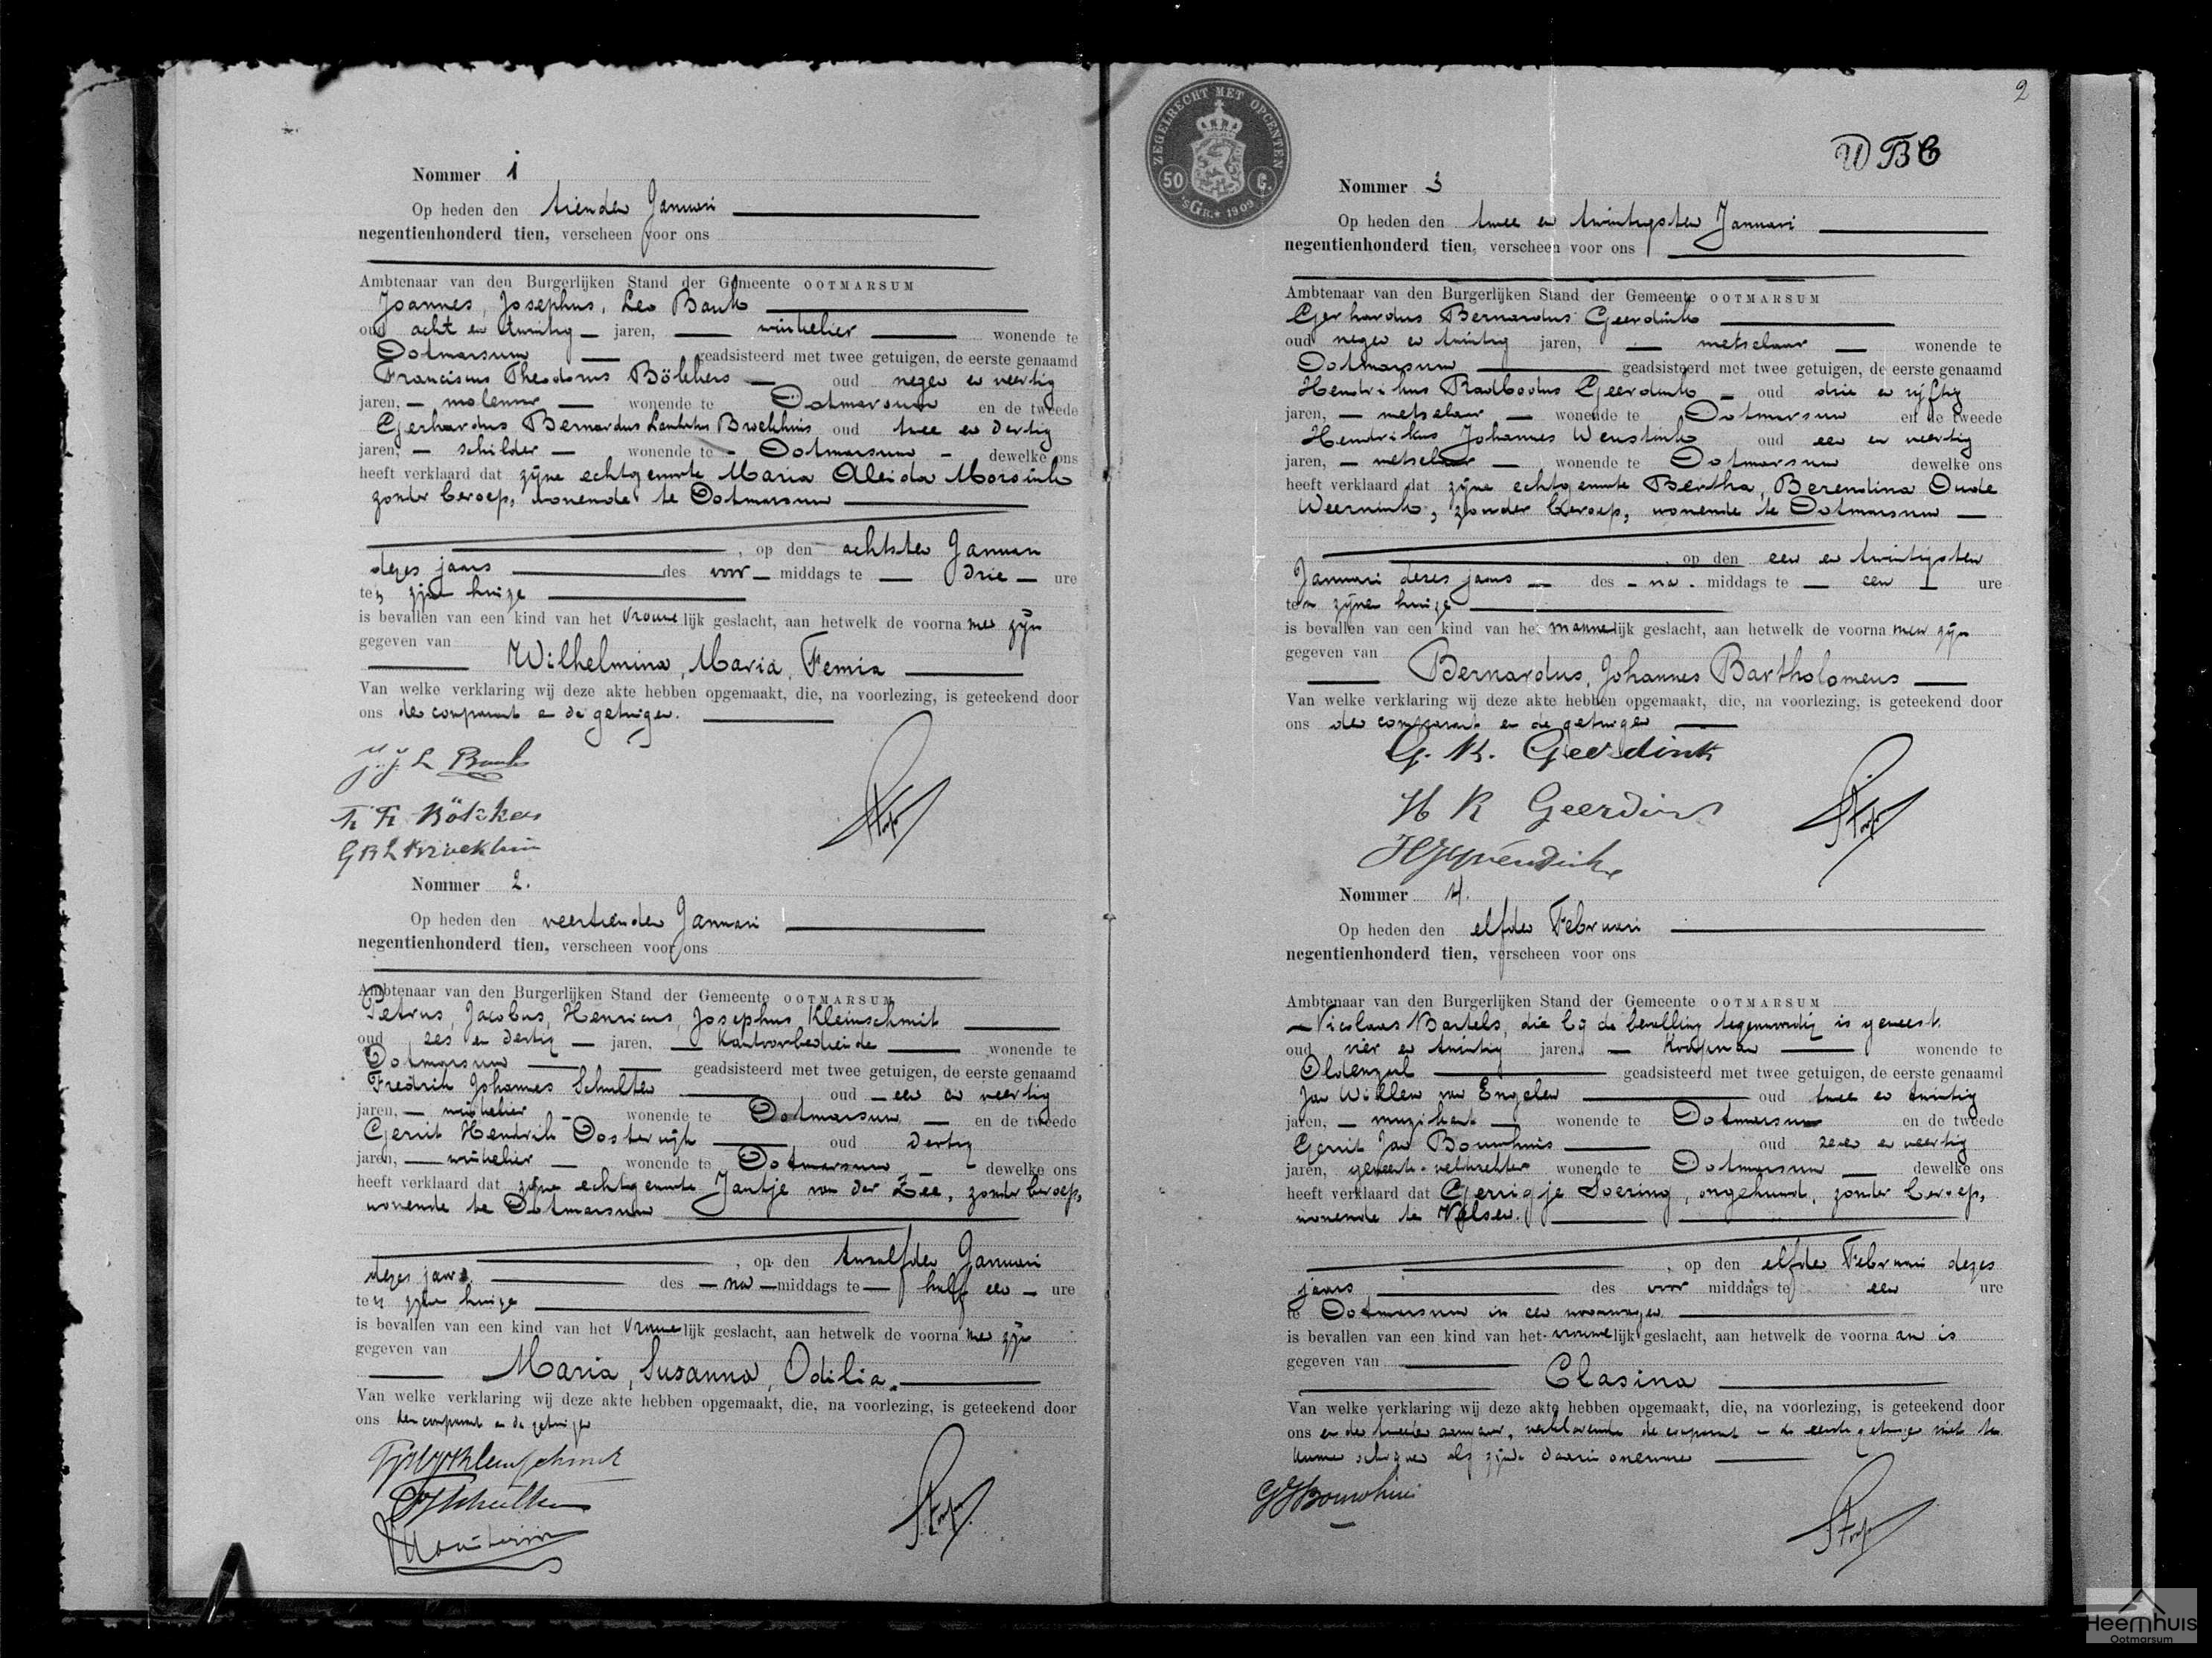 Nommer 1
Op heden den tienden Januari
negentienhonderd tien, verscheen voor ons
Ambtenaar van den Burgerlijken Stand der Gemeente OOTMARSUM
Joannes, Josephus, Leo Bank
oud acht en twintig jaren, winkelier wonende te
Ootmarsum geadsisteerd met twee getuigen, de eerste genaamd
Franciscus Theodorus Bölckers oud negen en veertig
jaren, molenaar wonende te Ootmarsum en de tweede
Gerhardus Bernardus Broekhuis oud twee en dertig
jaren, schilder wonende te Ootmarsum dewelke ons
heeft verklaard dat zijne echtgenoote Maria Aleida Morsink
zonder beroep, wonende te Ootmarsum
, op den achtsten Januari
dezes jaars des voor middags te drie ure
ten zijnen huize
is bevallen van een kind van het vrouwelijk geslacht, aan hetwelk de voornamen zijn
gegeven van
Wilhelmina, Maria, Femia
Van welke verklaring wij deze akte hebben opgemaakt, die, na voorlezing, is geteekend door
ons den comparant en de getuigen.
J. J. L Bank
G B L Broekhuis
Nommer 2.
Op heden den veertienden Januari
negentienhonderd tien, verscheen voor ons
Ambtenaar van den Burgerlijken Stand der Gemeente OOTMARSUM
Petrus, Jacobus, Henricus, Josephus Kleinschmit
oud zes en dertig jaren, kantoorbediende wonende te
Ootmarsum geadsisteerd met twee getuigen, de eerste genaamd
Fredrik Johannes Schulten oud een en veertig
jaren, winkelier wonende te Ootmarsum en de tweede
Gerrit Hendrik Oosterwijk oud dertig
jaren, winkelier wonende te Ootmarsum dewelke ons
heeft verklaard dat zijne echtgenoote Jantje van der Zee, zonder beroep,
wonende te Ootmarsum
, op den twaalfden Januari
dezes jaars des na middags te half een ure
ten zijnen huize
is bevallen van een kind van het vrouwelijk geslacht, aan hetwelk de voornamen zijn
gegeven van
Maria, Susanna, Odilia.
Van welke verklaring wij deze akte hebben opgemaakt, die, na voorlezing, is geteekend door
ons den comparant en de getuigen
Kleinschmit
Schulten
2
ZEGELRECHT MET OPCENTEN
50 C.
'sGR. 1909
WBC
Nommer 3
Op heden den twee en twintigsten Januari
negentienhonderd tien, verscheen voor ons
Ambtenaar van den Burgerlijken Stand der Gemeente OOTMARSUM
Gerhardus Bernardus Geerdink
oud negen en twintig jaren, metselaar wonende te
Ootmarsum geadsisteerd met twee getuigen, de eerste genaamd
Hendrikus Radbodus Geerdink oud drie en vijftig
jaren, metselaar wonende te Ootmarsum en de tweede
Hendrikus Johannes Wensink oud een en veertig
jaren, metselaar wonende te Ootmarsum dewelke ons
heeft verklaard dat zijne echtgenoote Bertha, Berendina Oude
Weernink, zonder beroep, wonende te Ootmarsum
op den een en twintigsten
Januari dezes jaars des na middags te een ure
ten zijnen huize
is bevallen van een kind van het mannelijk geslacht, aan hetwelk de voornamen zijn
gegeven van
Bernardus, Johannes Bartholomeus
Van welke verklaring wij deze akte hebben opgemaakt, die, na voorlezing, is geteekend door
ons den comparant en de getuigen
Geerdink
H R Geerdink
Nommer 4.
Op heden den elfden Februari
negentienhonderd tien, verscheen voor ons
Ambtenaar van den Burgerlijken Stand der Gemeente OOTMARSUM
Nicolaas Bartels, die bij de bevalling tegenwoordig is geweest.
oud vier en twintig jaren, koopman wonende te
Oldenzaal geadsisteerd met twee getuigen, de eerste genaamd
Jan Willem van Engelen oud twee en twintig
jaren, muzikant wonende te Ootmarsum en de tweede
Gerrit Jan Bouwhuis oud zeven en veertig
jaren, gemeente-veldwachter wonende te Ootmarsum dewelke ons
heeft verklaard dat Gerrigje Soering, ongehuwd, zonder beroep,
wonende te Velsen.
, op den elfden Februari dezes
jaars des voor middags te een ure
te Ootmarsum in een woonwagen
is bevallen van een kind van het vrouwelijk geslacht, aan hetwelk de voornaam is
gegeven van
Clasina
Van welke verklaring wij deze akte hebben opgemaakt, die, na voorlezing, is geteekend door
ons en den tweeden getuige, verklarende de comparant en de eerste getuige niet te
kunnen teekenen als zijnde daarin onervaren
GJ Bouwhuis
Heemhuis
Ootmarsum